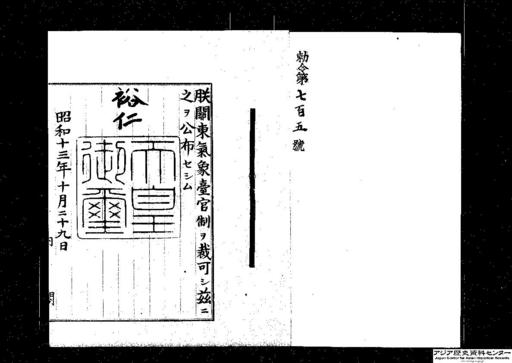 勅令第七百五號
朕關東氣象臺官制ヲ裁可シ茲ニ
之ヲ公布セシム
裕仁
天皇御璽
昭和十三年十月二十九日
内閣
アジア歴史資料センター
Japan Center for Asian Historical Records